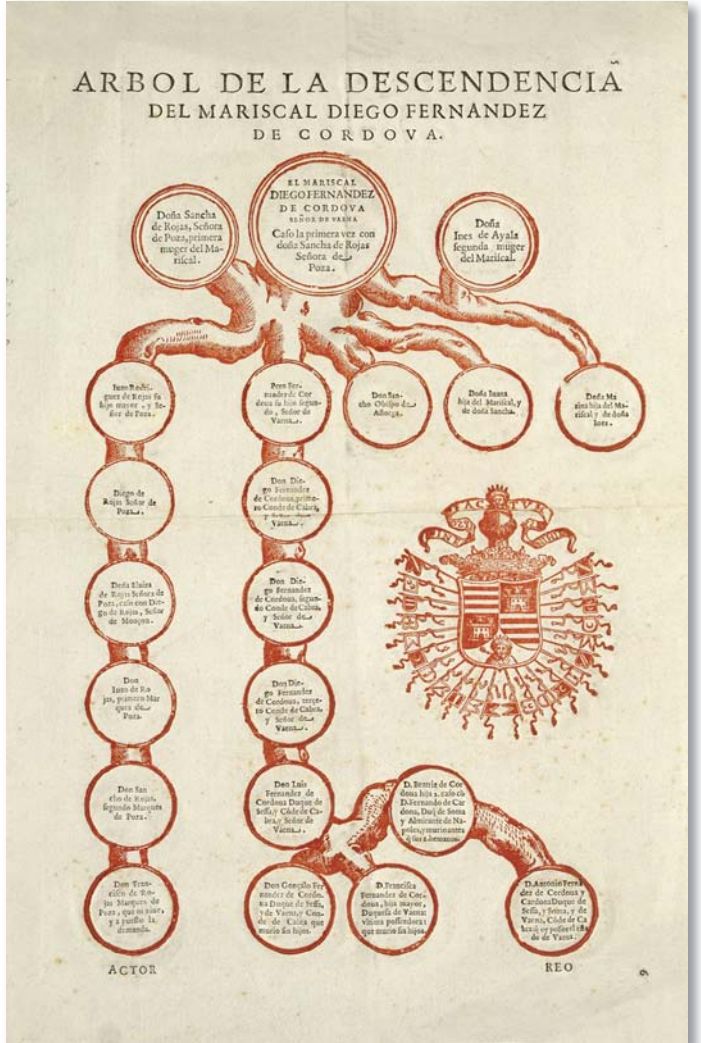 ARBOL DE LA DESCENDENCIA
DEL MARISCAL DIEGO FERNANDEZ
DE CORDOVA.
Doña Sancha
de Rojas, Señora
de Poza, primera
muger del Ma-
riscal.
EL MARISCAL
DIEGO FERNANDEZ
DE CORDOVA
SEÑOR DE VAENA
Caso la primera vez con
doña Sancha de Rojas
Señora de
Poza.
Doña
Ines de Ayala
segunda muger
del Mariscal.
Iuan Rodri-
guez de Rojas su
hijo mayor, y Se-
ñor de Poza.
Pero Fer-
nandez de Cor
doua su hijo segun-
do, Señor de
Vaena.
Don San-
cho Obispo de
Astorga.
Doña Iuana
hija del Mariscal, y
de doña Sancha.
Doña Ma
rina hija del Ma-
riscal y de doña
Ines.
Diego de
Rojas Señor de
Poza.
Don Die-
go Fernandez
de Cordoua, prime-
ro Conde de Cabra,
y Señor de
Vaena.
Doña Eluira
de Rojas Señora de
Poza, caso con Die-
go de Rojas, Señor
de Monçon.
Don Die-
go Fernandez
de Cordoua, segun-
do Conde de Cabra,
y Señor de
Vaena.
Don
Iuan de Ro
jas, primero Mar
ques de
Poza.
Don Die-
go Fernandez
de Cordoua, terce-
ro Conde de Cabra,
y Señor de
Vaena.
Don San
cho de Rojas,
segundo Marques
de Poza.
Don Luis
Fernandez de
Cordoua Duque de
Sessa, y Cõde de Ca-
bra, y Señor de
Vaena.
D. Beatriz de Cor
doua hija 2. caso cõ
D. Fernando de Car
dona, Duq̃ de Soma
y Almirante de Na-
poles, y murio antes
q̃ sus hermanos.
Don Fran-
cisco de Ro-
jas Marques de
Poza, que oi viue,
y a puesto la
demanda.
Don Gonçalo Fer
nandez de Cordo-
ua Duque de Sessa,
y de Vaena, y Con-
de de Cabra que
murio sin hijos.
D. Francisca
Fernandez de Cor-
doua, hija mayor,
Duquesa de Vaena:
vltima posseedora:
que murio sin hijos.
D. Antonio Ferna
dez de Cordoua y
Cardona Duque de
Sessa, y Soma, y de
Vaena, Cõde de Ca
bra q̃ oy possee el esta
do de Vaena.
ACTOR
REO